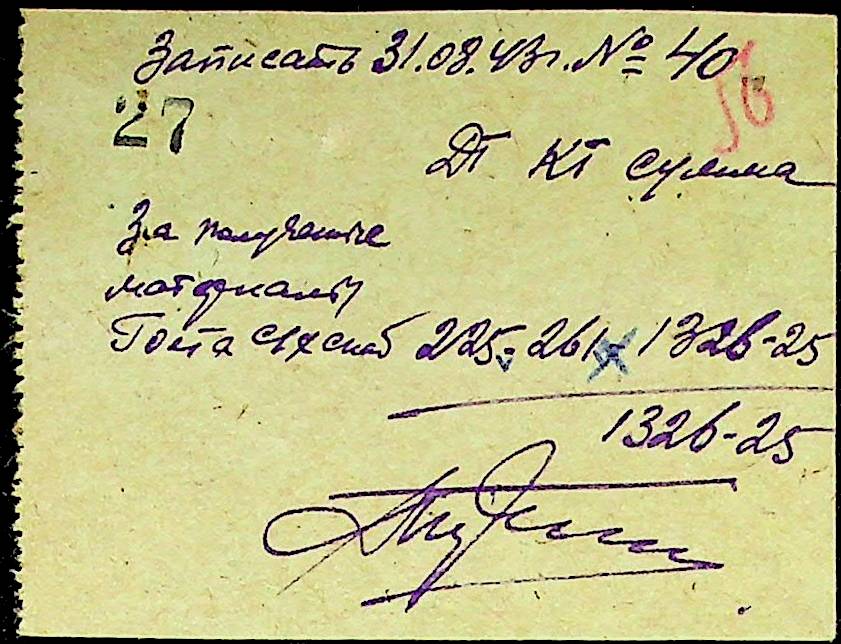 Записать 31.08.43 г. № 40
56
27
Дт Кт сумма
За полученые
материалы
225. 261. 1326-25
1326-25